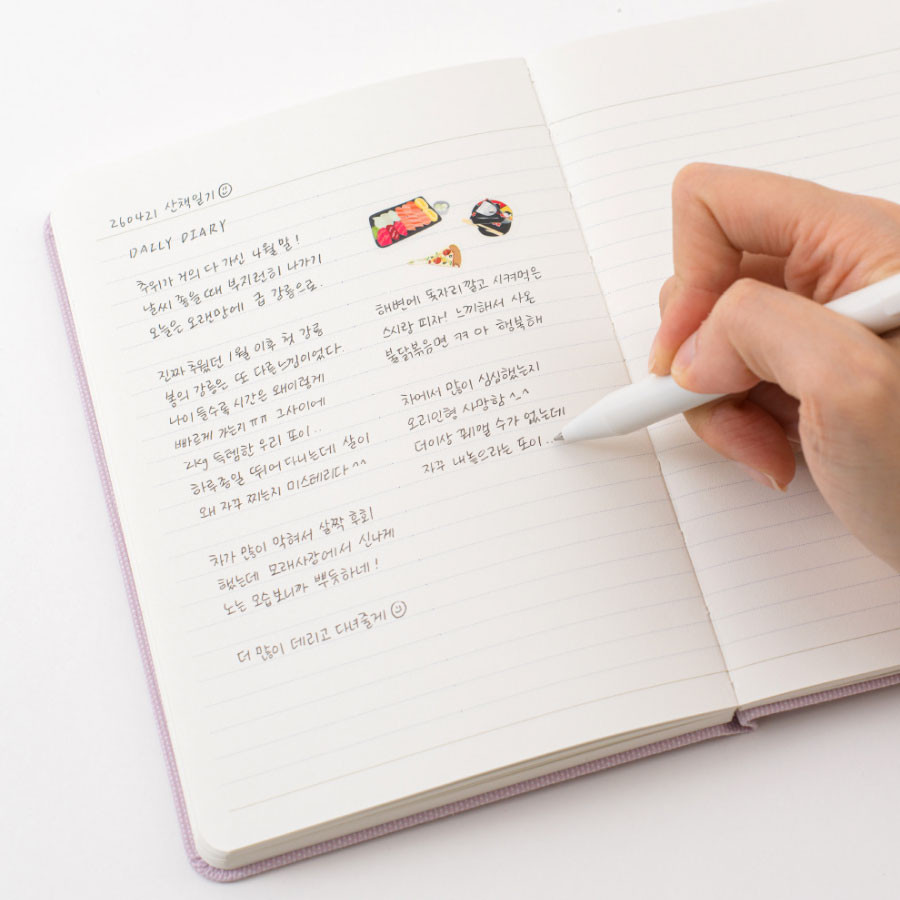 260421 산책일기
DALLY DIARY
추위가 거의 다 가신 4월 말!
날씨 좋을 때 부지런히 나가기
오늘은 오랜만에 급 강릉으로.
진짜 추웠던 1월 이후 첫 강릉
봄의 강릉은 또 다른느낌이었다.
나이들수록 시간은 왜이렇게
빠르게 가는지 ㅠㅠ 그사이에
2kg 득템한 우리 또이..
하루종일 뛰어다니는데 살이
왜 자꾸 찌는지 미스테리다 ^^
차가 많이 막혀서 살짝 후회
했는데 모래사장에서 신나게
노는 모습보니까 뿌듯하네!
더 많이 데리고 다녀줄게
해변에 돗자리깔고 시켜먹은
스시랑 피자! 느끼해서 사온
불닭볶음면 ㅋㅋ 아 행복해
차에서 많이 심심했는지
오리인형 사망함 ^_^
더이상 꿰맬 수가 없는데
자꾸 내놓으라는 또이..